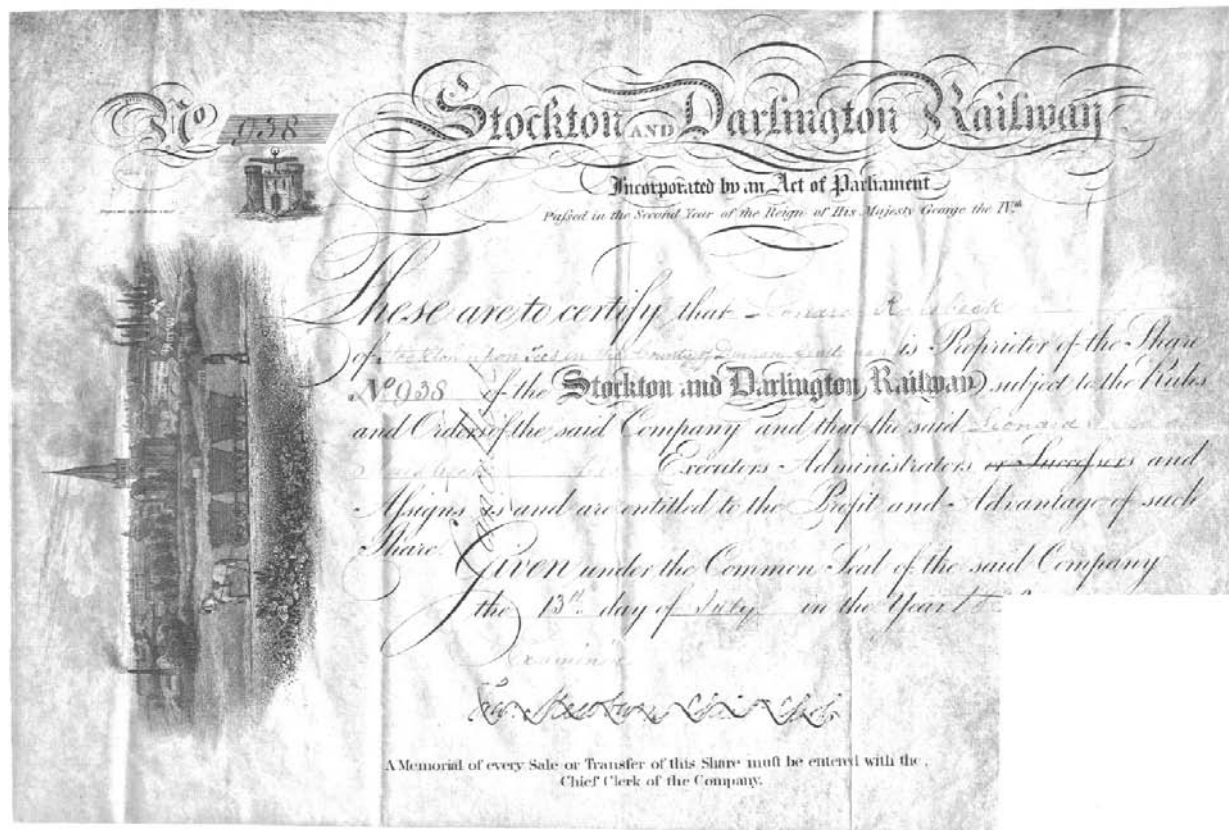 No 938
Stockton AND Darlington Railway
Incorporated by an Act of Parliament
Paſsed in the Second Year of the Reign of His Majesty George the IVth
These are to certify that Leonard Raisbeck
of Stockton upon Tees in the County of Durham is Proprietor of the Share
No 938 of the Stockton and Darlington Railway subject to the Rules
and Orders of the said Company and that the said Leonard
Raisbeck his Executors Administrators or Succeſsors and
Aſsigns is and are entitled to the Profit and Advantage of such
Share. Given under the Common Seal of the said Company
the 13th day of July in the Year
Examined
A Memorial of every Sale or Transfer of this Share muſt be entered with the
Chief Clerk of the Company.